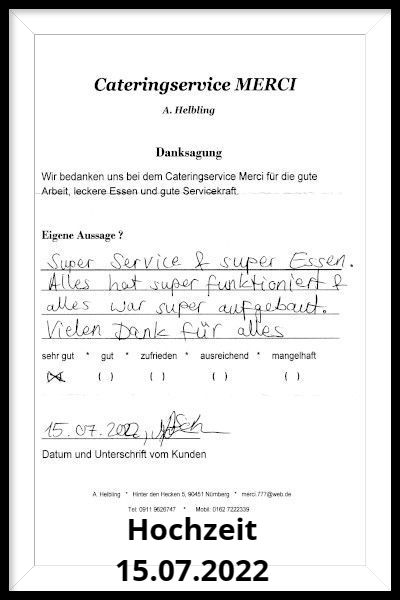 Cateringservice MERCI
A. Helbling
Danksagung
Wir bedanken uns bei dem Cateringservice Merci für die gute
Arbeit, leckere Essen und gute Servicekraft.
Eigene Aussage ?
Super Service & super Essen.
Alles hat super funktioniert &
alles war super aufgebaut.
Vielen Dank für alles
sehr gut * gut * zufrieden * ausreichend * mangelhaft
( ) ( ) ( ) ( )
15.07.2022,
Datum und Unterschrift vom Kunden
A. Helbling * Hinter den Hecken 5, 90451 Nürnberg * merci.777@web.de
Tel: 0911 9626747 * Mobil: 0162 7222339
Hochzeit
15.07.2022